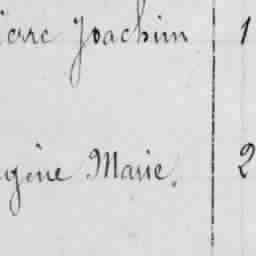 ierre Joachim 1
gène Marie. 2